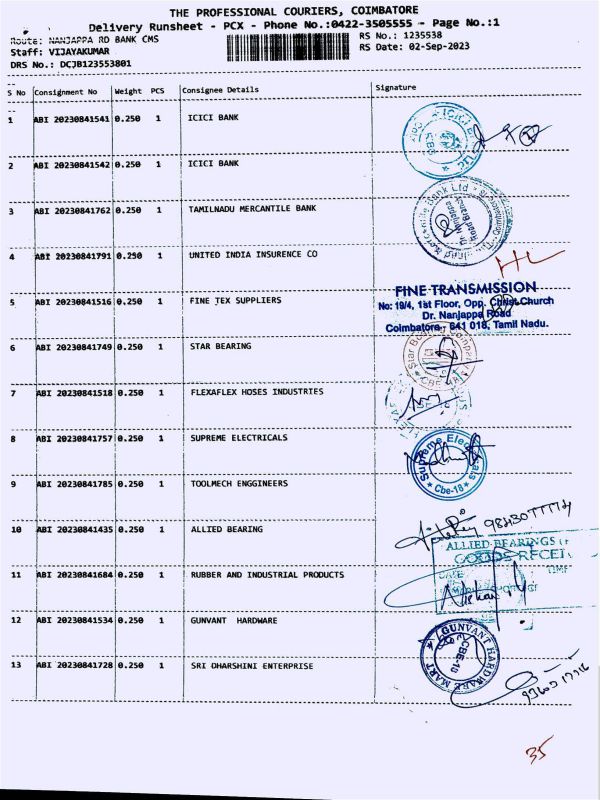 THE PROFESSIONAL COURIERS, COIMBATORE
Delivery Runsheet - PCX - Phone No.:0422-3505555 - Page No.:1
Route: NANJAPPA RD BANK CMS
RS No.: 1235538
Staff: VIJAYAKUMAR
RS Date: 02-Sep-2023
DRS No.: DCJB123553801
S No Consignment No Weight PCS Consignee Details Signature
1 ABI 20230841541 0.250 1 ICICI BANK
ICICI
2 ABI 20230841542 0.250 1 ICICI BANK
3 ABI 20230841762 0.250 1 TAMILNADU MERCANTILE BANK
Mercantile Bank Ltd
Nanjappa
Road Branch
4 ABI 20230841791 0.250 1 UNITED INDIA INSURENCE CO
FINE TRANSMISSION
No: 19/4, 1st Floor, Opp. Christ Church
Dr. Nanjappa Road
Coimbatore - 641 018, Tamil Nadu.
5 ABI 20230841516 0.250 1 FINE TEX SUPPLIERS
6 ABI 20230841749 0.250 1 STAR BEARING
Star Bearing Company
CBE-18
7 ABI 20230841518 0.250 1 FLEXAFLEX HOSES INDUSTRIES
8 ABI 20230841757 0.250 1 SUPREME ELECTRICALS
Supreme Electricals
Cbe-18
9 ABI 20230841785 0.250 1 TOOLMECH ENGGINEERS
10 ABI 20230841435 0.250 1 ALLIED BEARING
ALLIED BEARINGS
GOODS RECEI
DATE TIME
11 ABI 20230841684 0.250 1 RUBBER AND INDUSTRIAL PRODUCTS
12 ABI 20230841534 0.250 1 GUNVANT HARDWARE
GUNVANT HARDWARE MART
CBE-18
13 ABI 20230841728 0.250 1 SRI DHARSHINI ENTERPRISE
35